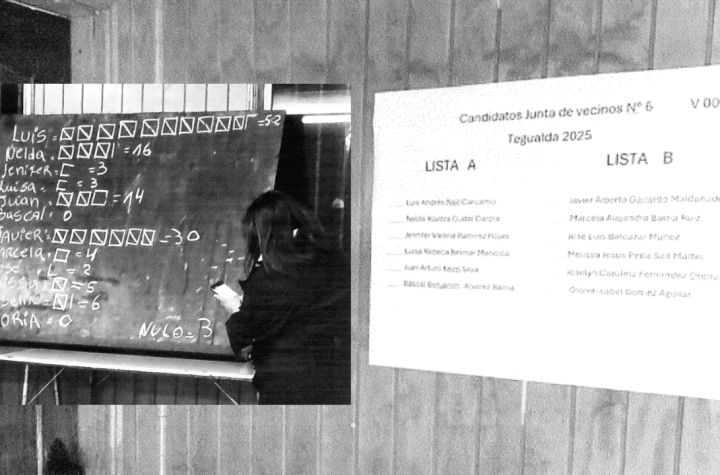 Luis = =52
Nelda. =16
Jenifer. =3
Luisa. =3
Juan =14
Bascal. 0
Javier: =30
arcela. =4
osé =2
=5
=6
ORIA = 0
NULO = 3
Candidatos Junta de vecinos Nº 6 V 00
Tegualda 2025
LISTA A
Luis Andrés Carcamo
Nelda
Jennifer Ramirez Rojas
Luisa Rebeca Belmar Mancilla
Juan Arturo Silva
Bascal Benjamin Alvarez Barria
LISTA B
Javier Alberto Gallardo Maldonado
Marcela Alejandra Barria Ruiz
José Luis Balcazar Muñoz
Melissa Jesus Peña San Martin
Joselyn Carolina Fernandez
Gloria Isabel Gomez Aguilar